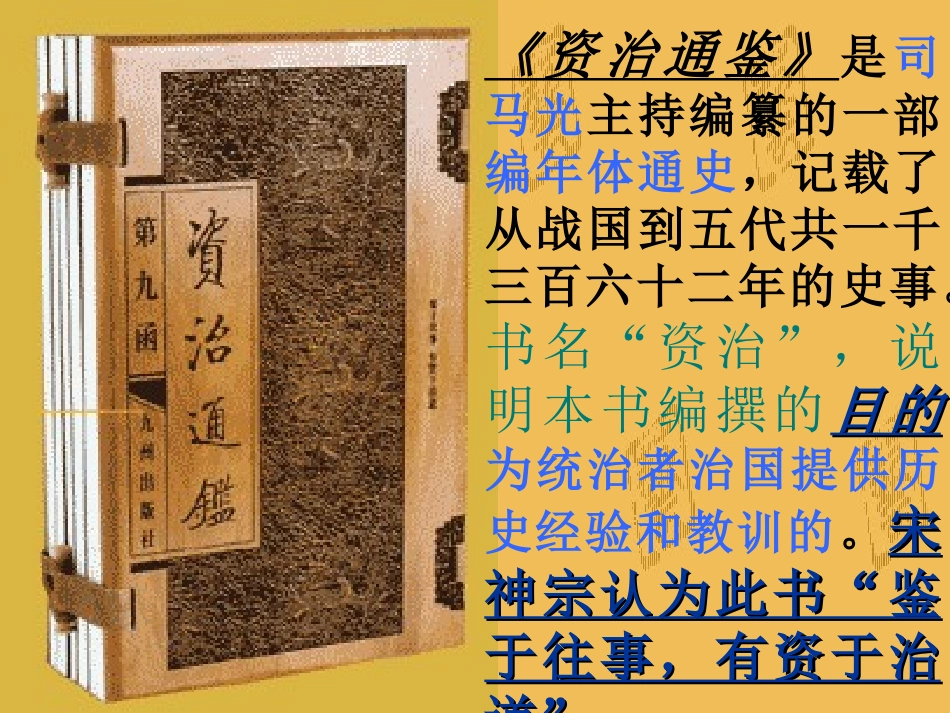 第九函
九州出版社
資治通鑑
《资治通鉴》是司
马光主持编纂的一部
编年体通史，记载了
从战国到五代共一千
三百六十二年的史事。
书名“资治”，说
明本书编撰的目的
为统治者治国提供历
史经验和教训的。宋
神宗认为此书“鉴
于往事，有资于治
道”